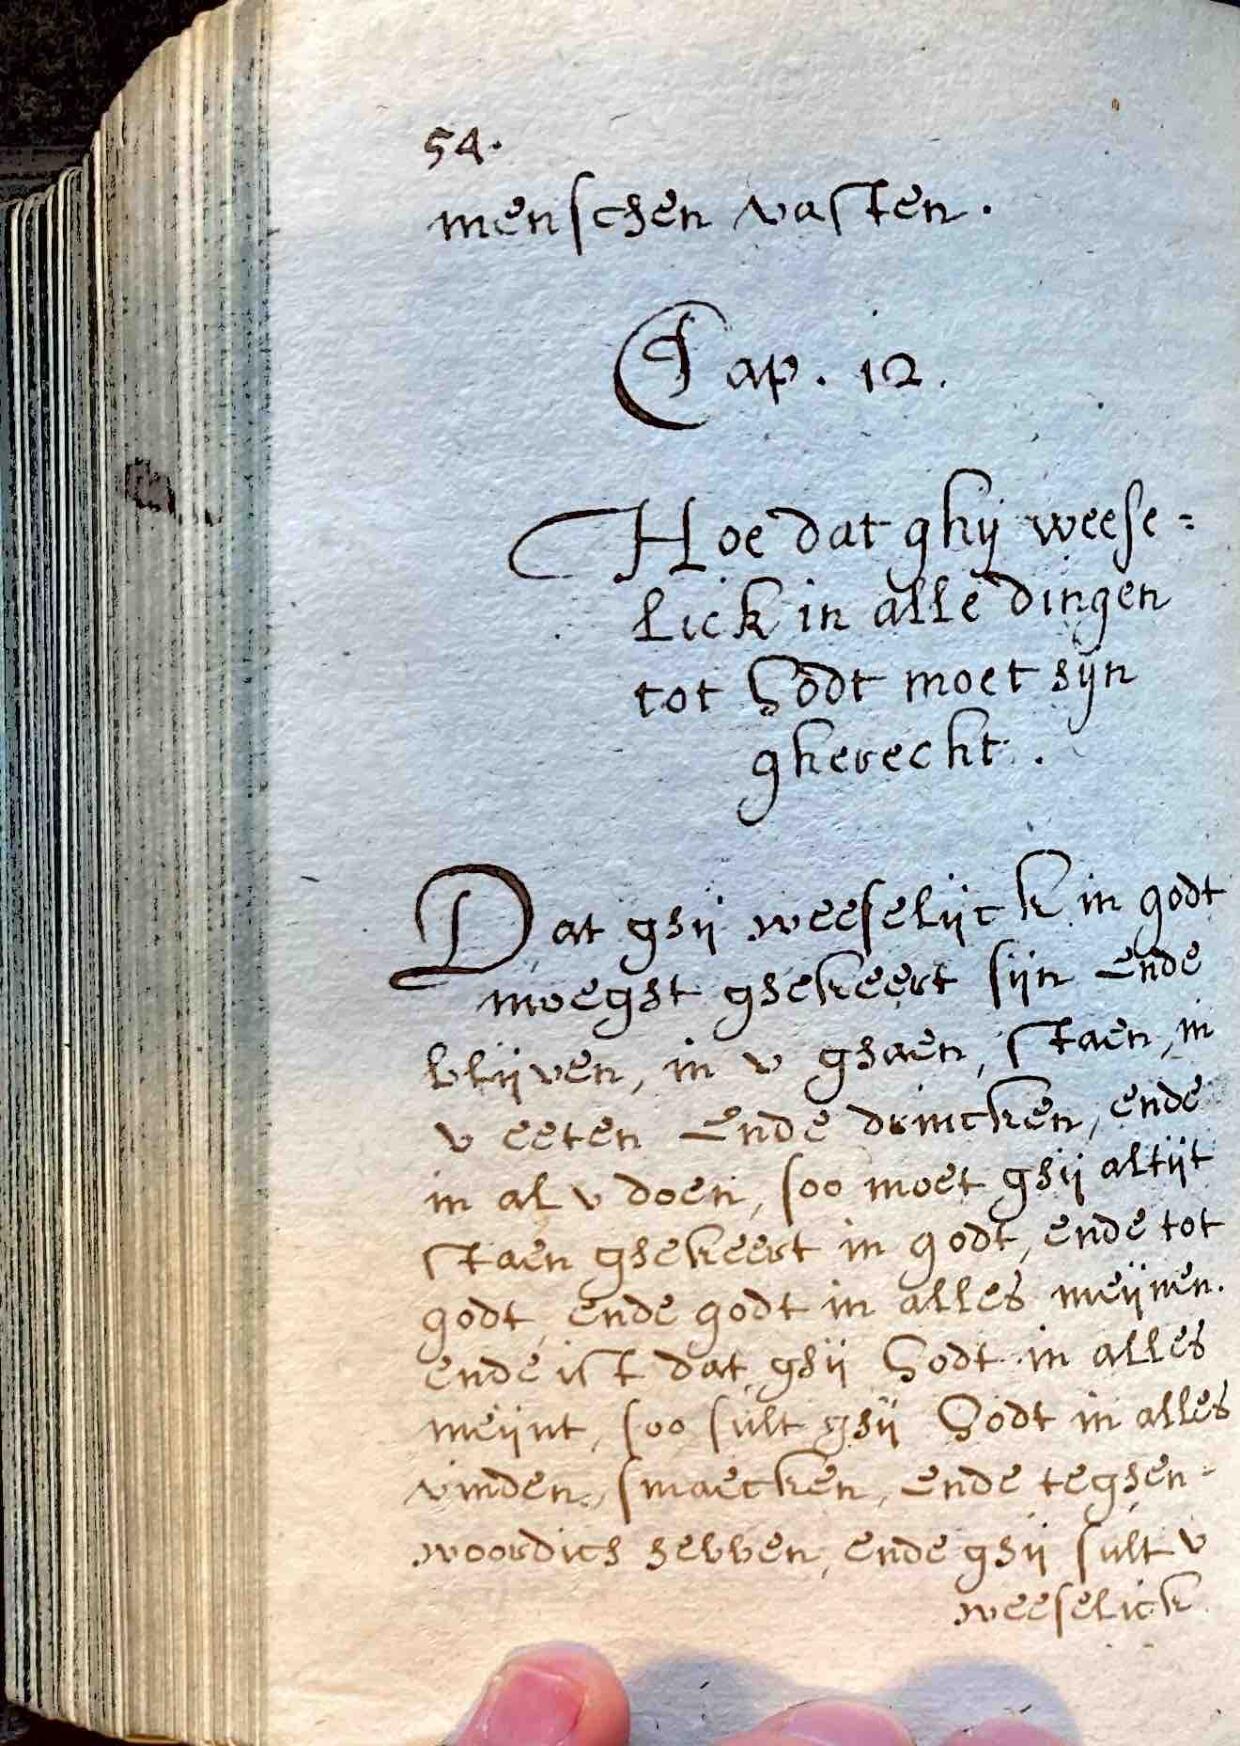 54.
menschen vasten.
Cap. 12.
Hoe dat ghij weese=
lick in alle dingen
tot Godt moet sijn
gherecht.
Dat ghij weeselijck in godt
moeght ghekeert sijn ende
blijven, in v ghaen, staen, in
v eeten ende drincken, ende
in al v doen, soo moet ghij altijt
staen ghekeert in godt, ende tot
godt, ende godt in alles meijnen.
ende ist dat ghij Godt in alles
meijnt, soo sult ghij Godt in alles
vinden, smaecken, ende teghen-
woordich hebben, ende ghij sult v
weeselick